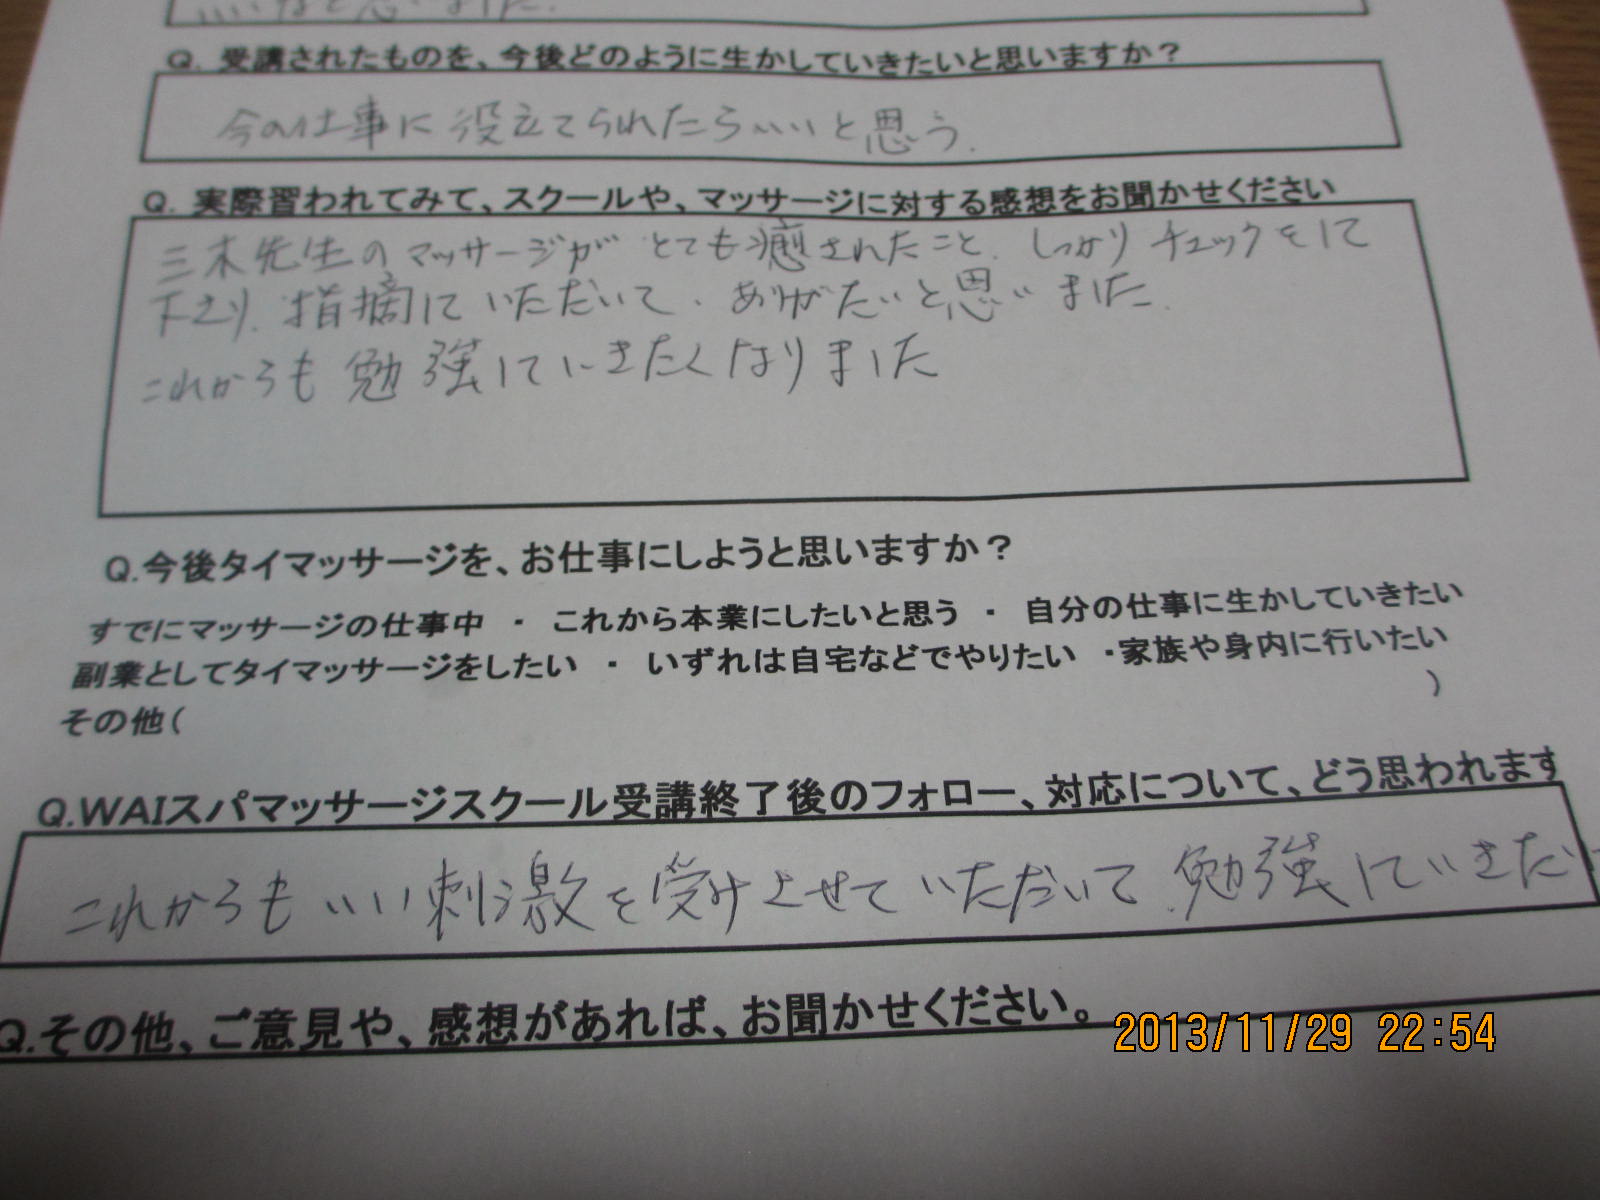 と思いました.
Q. 受講されたものを、今後どのように生かしていきたいと思いますか？
今の仕事に役立てられたらいいと思う.
Q. 実際習われてみて、スクールや、マッサージに対する感想をお聞かせください
三木先生のマッサージがとても癒されたこと. しっかりチェックをして
下さり. 指摘していただいて. ありがたいと思いました.
これからも勉強していきたくなりました
Q.今後タイマッサージを、お仕事にしようと思いますか？
すでにマッサージの仕事中 ・ これから本業にしたいと思う ・ 自分の仕事に生かしていきたい
副業としてタイマッサージをしたい ・ いずれは自宅などでやりたい ・家族や身内に行いたい
その他（ ）
Q.WAIスパマッサージスクール受講終了後のフォロー、対応について、どう思われます
これからもいい刺激を受けさせていただいて.勉強していきた
Q.その他、ご意見や、感想があれば、お聞かせください。
2013/11/29 22:54